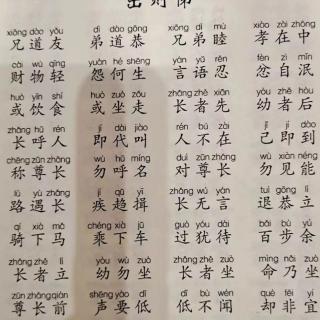 出则悌
xiōng dào yǒu dì dào gōng xiōng dì mù xiào zài zhōng
兄道友 弟道恭 兄弟睦 孝在中
cái wù qīng yuàn hé shēng yán yǔ rěn fèn zì mǐn
财物轻 怨何生 言语忍 忿自泯
huò yǐn shí huò zuò zǒu zhǎng zhě xiān yòu zhě hòu
或饮食 或坐走 长者先 幼者后
zhǎng hū rén jí dài jiào rén bú zài jǐ jí dào
长呼人 即代叫 人不在 己即到
chēng zūn zhǎng wù hū míng duì zūn zhǎng wù xiàn néng
称尊长 勿呼名 对尊长 勿见能
lù yù zhǎng jí qū yī zhǎng wú yán tuì gōng lì
路遇长 疾趋揖 长无言 退恭立
qí xià mǎ chéng xià jū guò yóu dài bǎi bù yú
骑下马 乘下车 过犹待 百步余
zhǎng zhě lì yòu wù zuò zhǎng zhě zuò mìng nǎi zuò
长者立 幼勿坐 长者坐 命乃坐
zūn zhǎng qián shēng yào dī dī bù wén què fēi yí
尊长前 声要低 低不闻 却非宜